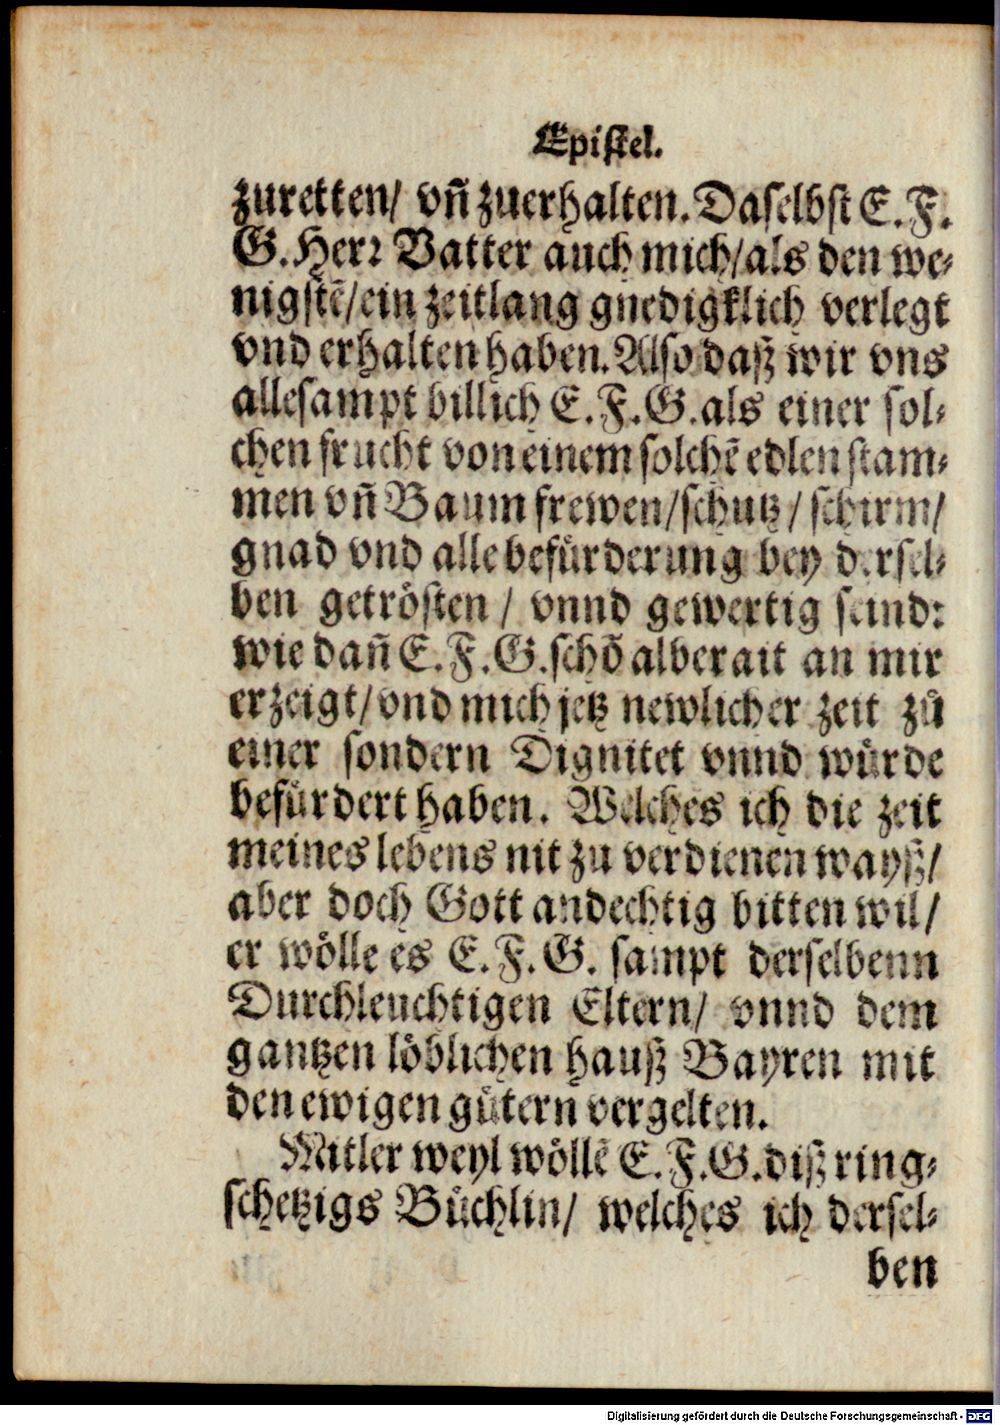 Epistel.
zuretten/ vñ zuerhalten. Daselbst E. F.
G. Herꝛ Vatter auch mich/als den we⸗
nigstẽ/ein zeitlang gnedigklich verlegt
vnd erhalten haben. Also daß wir vns
allesampt billich E. F. G. als einer sol⸗
chen frucht von einem solchẽ edlen stam⸗
men vñ Baum frewen/schutz/ schirm/
gnad vnd alle befürderung bey dersel⸗
ben getrösten/ vnnd gewertig seind:
wie dañ E. F. G. schõ alberait an mir
erzeigt/vnd mich jetz newlicher zeit zů
einer sondern Dignitet vnnd würde
befürdert haben. Welches ich die zeit
meines lebens nit zu verdienen wayß/
aber doch Gott andechtig bitten wil/
er wölle es E. F. G. sampt derselbenn
Durchleuchtigen Eltern/ vnnd dem
gantzen löblichen hauß Bayren mit
den ewigen gütern vergelten.
Mitler weyl wöllẽ E. F. G. diß ring⸗
schetzigs Büchlin/ welches ich dersel⸗
ben
Digitalisierung gefördert durch die Deutsche Forschungsgemeinschaft - DFG